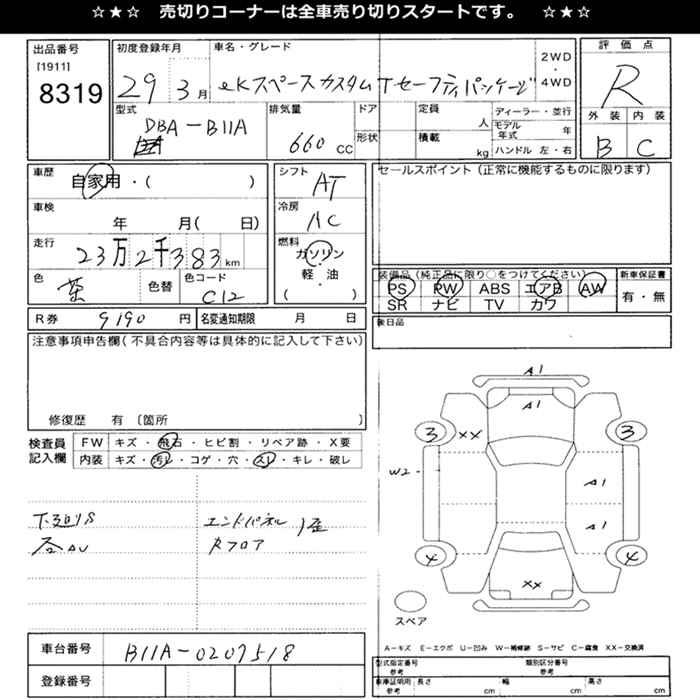 ☆★☆ 売切りコーナーは全車売り切りスタートです。 ☆★☆
出品番号
[1911]
8319
初度登録年月
29 3月
車名・グレード
eKスペースカスタムTセーフティパッケージ
2WD
・
4WD
評価点
R
外装 内装
B C
型式
DBA-B11A
排気量
660 CC
ドア
形状
定員
人
積載
kg
ディーラー・並行
モデル年式 年
ハンドル 左・右
車歴
自家用・( )
車検
年 月( 日)
走行
23万2千383km
色
茶
色替
色コード
C12
シフト
AT
冷房
AC
燃料
ガソリン
・
軽・油
( )
セールスポイント(正常に機能するものに限ります)
装備品(純正品に限り○をつけてください)
新車保証書
PS PW ABS エアB AW
SR ナビ TV カワ
有・無
R券 9190円
名変通知期限 月 日
後日品
注意事項申告欄(不具合内容等は具体的に記入して下さい)
修復歴 有〔箇所
検査員記入欄
FW キズ・飛石・ヒビ割・リペア跡・X要
内装 キズ・汚レ・コゲ・穴・スレ・キレ・破レ
下廻りS
各AU
エンドパネル
Rフロア
歪
A1
A1
3 XX 3
W2
A1
A1
4 XX 4
スペア
A-キズ E-エクボ U-凹み W-補修跡 S-サビ C-腐食 XX-交換済
車台番号
B11A-0207518
登録番号
型式指定番号
参考
類別区分番号
参考
車庫証明用 参考
長さ cm
幅 cm
高さ cm